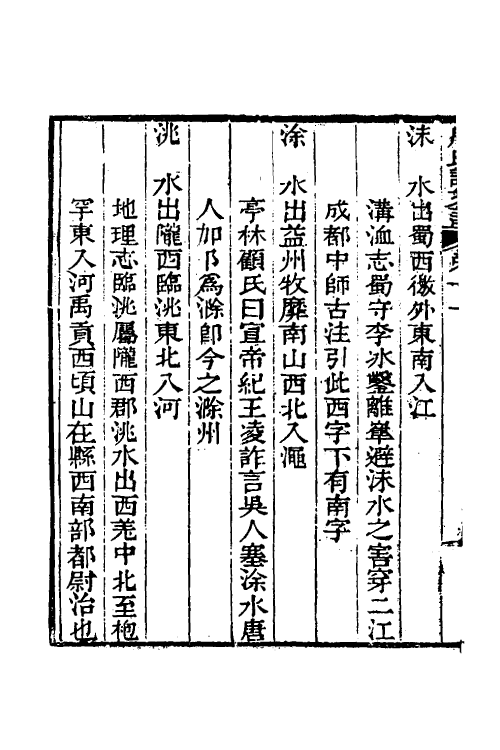 沬　水出蜀西徼外東南入江
溝洫志蜀守李冰鑿離𠁁避沬水之害穿二江
成都中師古注引此西字下有南字
涂　水出益州牧靡南山西北入澠
亭林顧氏曰宣帝紀王凌詐言吳人塞涂水唐
人加阝爲滁卽今之滁州
洮　水出隴西臨洮東北入河
地理志臨洮屬隴西郡洮水出西羌中北至枹
罕東入河禹貢西頃山在縣西南部都尉治也